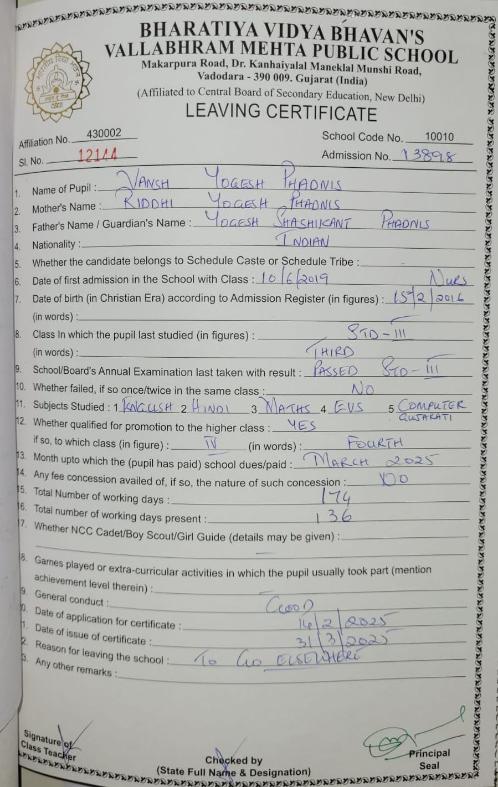 BHARATIYA VIDYA BHAVAN'S
VALLABHRAM MEHTA PUBLIC SCHOOL
Makarpura Road, Dr. Kanhaiyalal Maneklal Munshi Road,
Vadodara - 390 009. Gujarat (India)
(Affiliated to Central Board of Secondary Education, New Delhi)
LEAVING CERTIFICATE
Affiliation No. 430002 School Code No. 10010
Sl. No. 12144 Admission No. 13898
1. Name of Pupil : VANSH YOGESH PHADNIS
2. Mother's Name : RIDDHI YOGESH PHADNIS
3. Father's Name / Guardian's Name : YOGESH SHASHIKANT PHADNIS
4. Nationality : INDIAN
5. Whether the candidate belongs to Schedule Caste or Schedule Tribe :
6. Date of first admission in the School with Class : 10/6/2019 NURS
7. Date of birth (in Christian Era) according to Admission Register (in figures) : 15/2/2016
(in words) :
8. Class In which the pupil last studied (in figures) : STD-III
(in words) : THIRD
9. School/Board's Annual Examination last taken with result : PASSED STD-III
10. Whether failed, if so once/twice in the same class : NO
11. Subjects Studied : 1 ENGLISH 2 HINDI 3 MATHS 4 EVS 5 COMPUTER
GUJARATI
12. Whether qualified for promotion to the higher class : YES
if so, to which class (in figure) : IV (in words) : FOURTH
13. Month upto which the (pupil has paid) school dues/paid : MARCH 2025
14. Any fee concession availed of, if so, the nature of such concession : NO
15. Total Number of working days : 174
16. Total number of working days present : 136
17. Whether NCC Cadet/Boy Scout/Girl Guide (details may be given) :
8. Games played or extra-curricular activities in which the pupil usually took part (mention
achievement level therein) :
9. General conduct : GOOD
0. Date of application for certificate : 14/2/2025
1. Date of issue of certificate : 31/3/2025
2. Reason for leaving the school : TO GO ELSEWHERE
3. Any other remarks :
Signature of
Class Teacher
Checked by
(State Full Name & Designation)
Principal
Seal